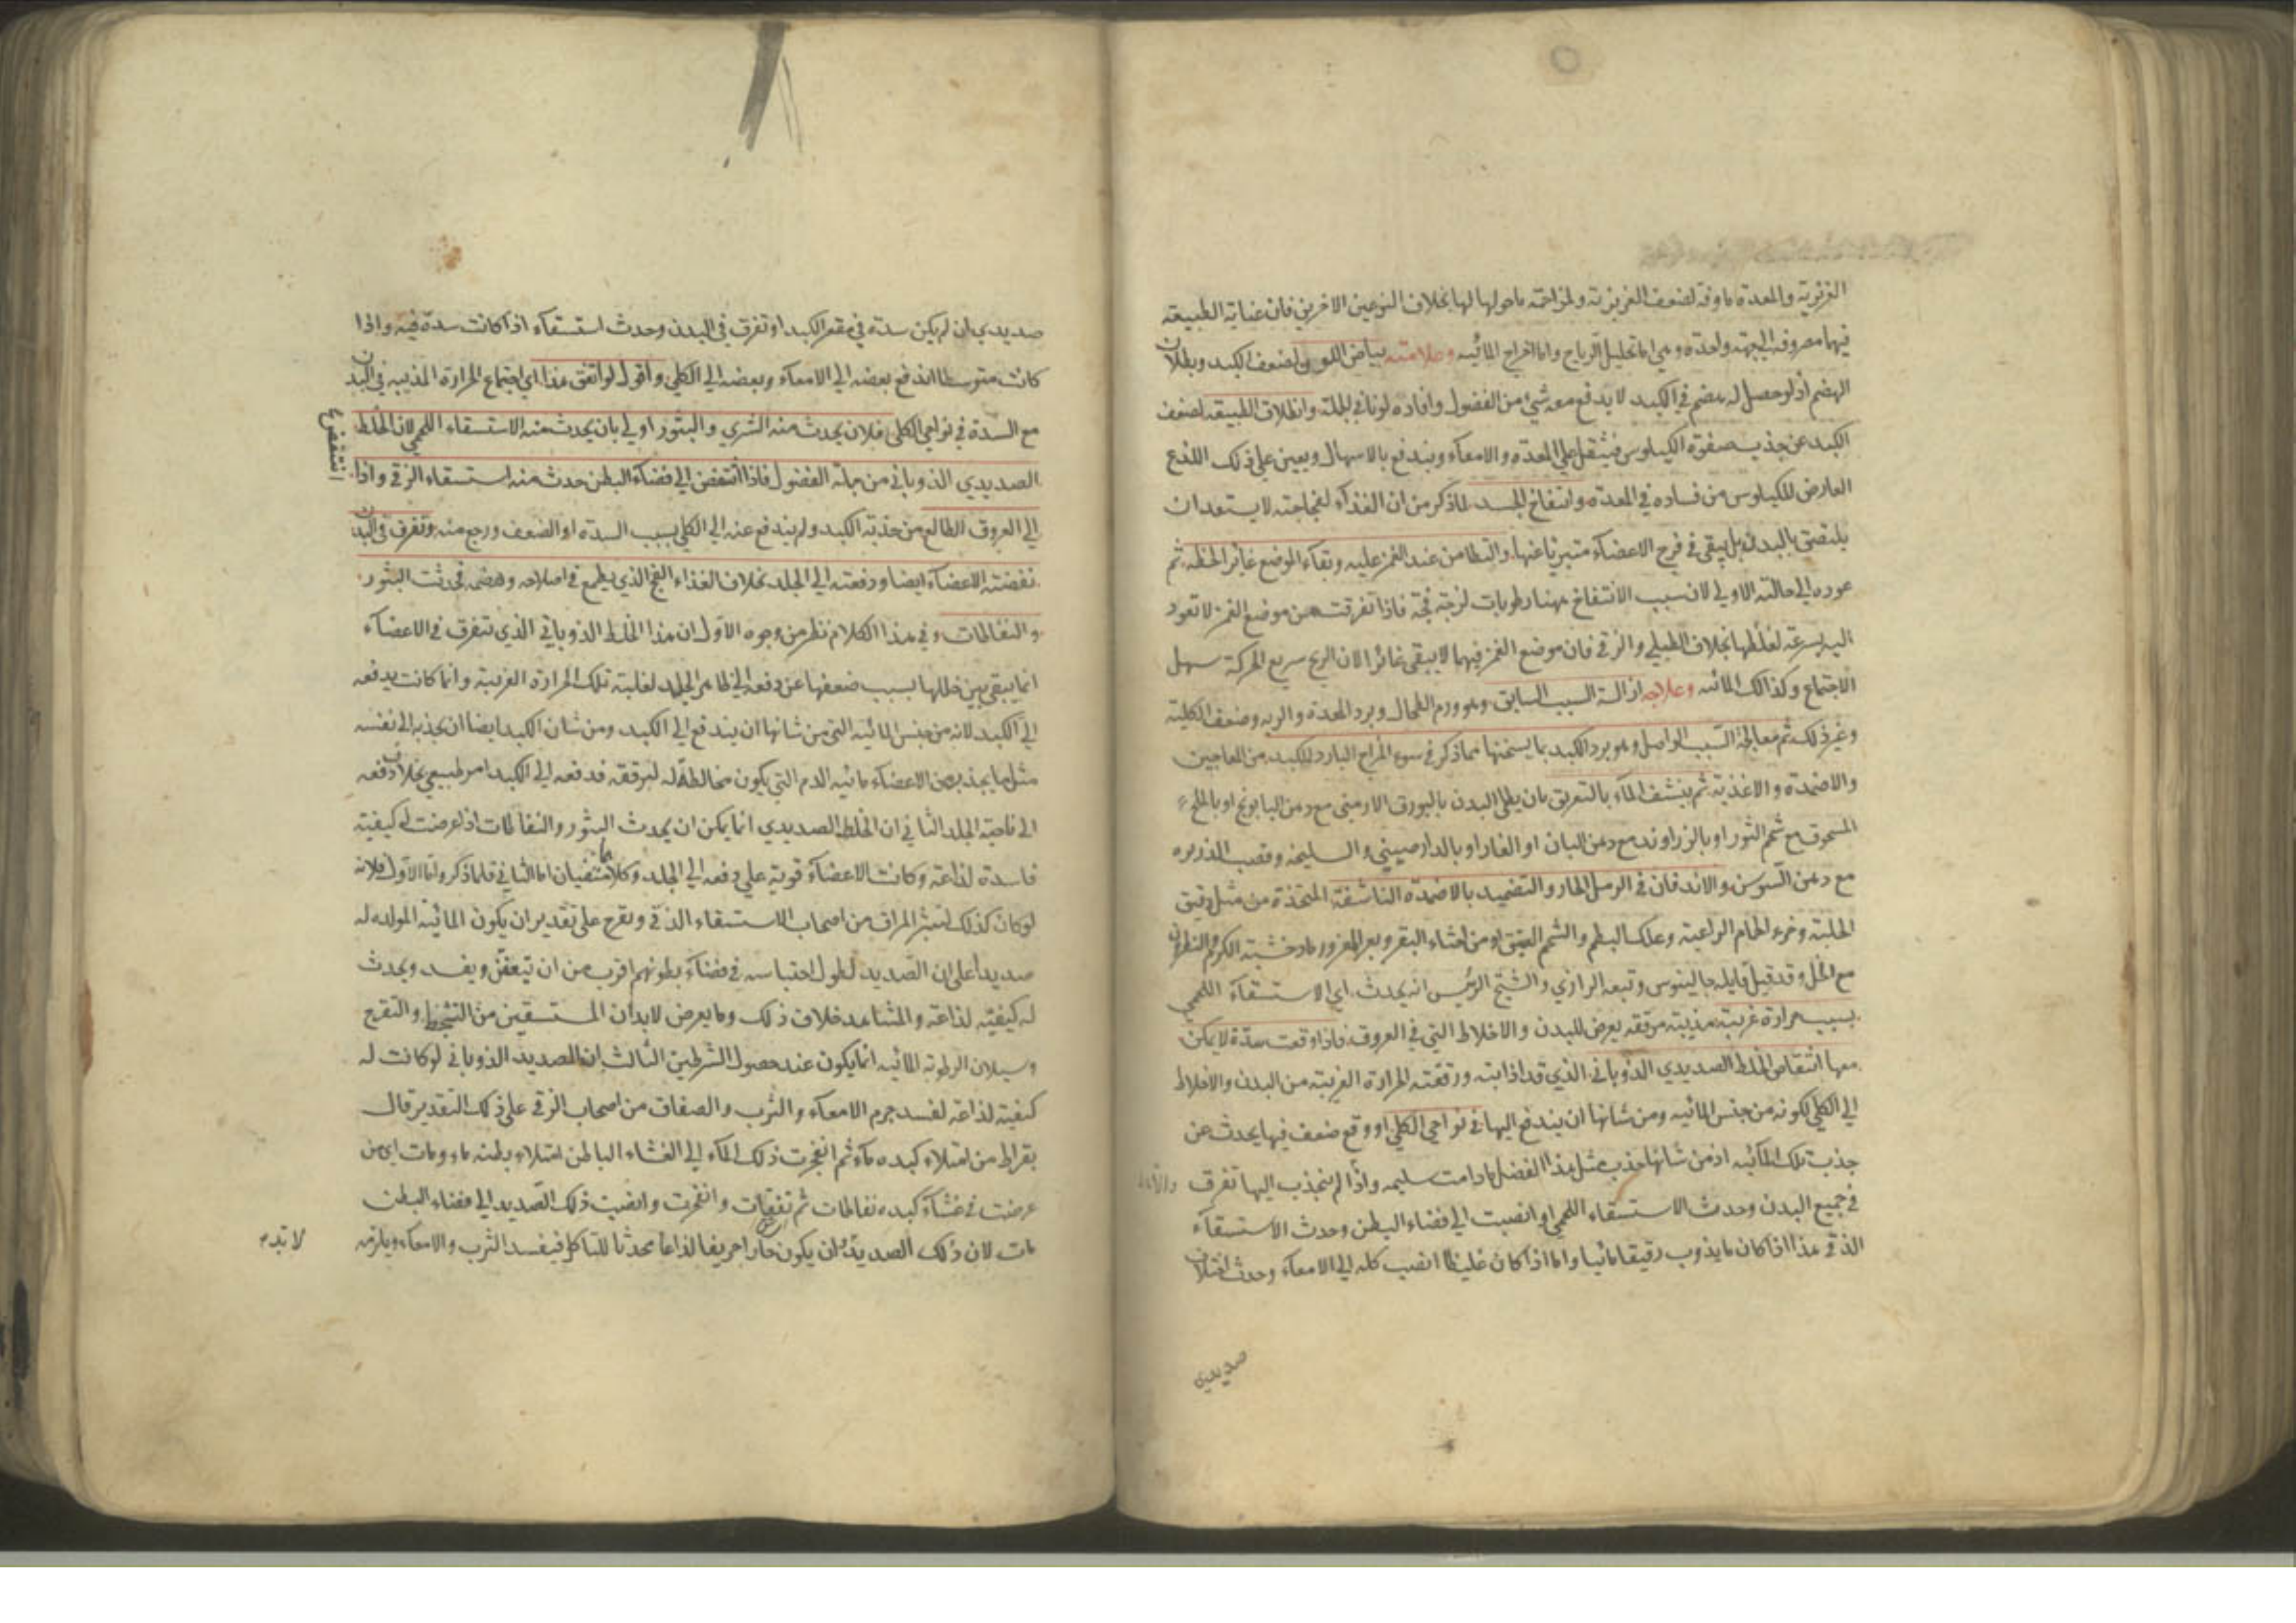 الغريزية والمعدة ماوفة لضعف الغريزية ولمزاحمة ماحولها لها بخلاف النوعين الاخرين فان عناية الطبيعة
فيهما مصروفة الي جهة واحدة وهي اما تحليل الرياح واما اخراج المائيه وعلامته بياض اللون لضعف الكبد وبطلان
الهضم اذ لو حصل له هضم في الكبد لا يدفع معه شي من الفضول وافاده لونا في الجملة وانطلاق الطبيعة لضعف
الكبد عن جذب صفوة الكيلوس فيثقل علي المعدة والامعاء ويندفع بالاسهال ويعين علي ذلك اللذع
العارض للكيلوس من فساده في المعدة وانتفاخ الجسد لما ذكر من ان الغذاء لفجاجته لا يستعد ان
يلتصق بالبدن بل يبقي في فرج الاعضاء متبريا عنها والتطامن عند الغمز عليه وبقاء الموضع غايرا لحظة ثم
عوده الي حالته الاولي لان سبب الانتفاخ ههنا رطوبات لزجة فجة فاذا تفرقت من موضع الغمز لا تعود
اليه بسرعة لغلظها بخلاف الطبلي والزقي فان موضع الغمز فيهما لا يبقي غائرا لان الريح سريع الحركة سهل
الاجتماع وكذالك المائيه وعلاجه ازالة السبب السابق وهو ورم الطحال وبرد المعدة والريه وضعف الكلية
وغير ذلك ثم معالجة السبب الواصل وهو برد الكبد بما يسخنها مما ذكر في سوء المزاج البارد للكبد من المعاجين
والاضمدة والاغذية ثم ينشف الماء بالتعريق بان يطلي البدن بالبورق الارمني مع دهن البابونج او بالملح
المسحوق مع شحم الثور او بالزراوند مع دهن البان او الغار او بالدارصيني والسليخه وقصب الذريره
مع دهن السوسن والاندفان في الرمل الحار والتضميد بالاضمدة الناشفة المتخذة من مثل دقيق
الحلبة وخرء الحمام الراعية وعلك البطم والشحم العتيق او من اخثاء البقر وبعر المعز ورماد خشبة الكرم والنطرون
مع الخل وقد قيل قايله جالينوس وتبعه الرازي والشيخ الرئيس انه يحدث اي الاستسقاء اللحمي
بسبب حرارة غريبة مذيبة مرققة يعرض للبدن والاخلاط التي في العروق فاذا وقعت سدة لا يمكن
معها انتفاض الخلط الصديدي الذوباني الذي قد اذابته ورققته الحرارة الغريبة من البدن والاخلاط
الي الكلي لكونه من جنس المائيه ومن شانها ان يندفع اليها في نواحي الكلي او وقع ضعف فيها يحدث عن
جذب تلك المائيه اذ من شانها جذب مثل هذا الفضل مادامت سليمه واذا لم ينجذب اليها تفرق
في جميع البدن وحدث الاستسقاء اللحمي او انصبت الي فضاء البطن وحدث الاستسقاء
الزقي هذا اذا كان ما يذوب رقيقا مائيا واما اذا كان غليظا انصب كله الي الامعاء وحدث اختلاف
صديدي
صديدي ان لم يكن سدة في مقعر الكبد او تفرق في البدن وحدث استسقاء اذا كانت سدة فيه واذا
كانت متوسطا اندفع بعضه الي الامعاء وبعضه الي الكلي واقول لو اتفق هذا اي اجتماع الحرارة المذيبه في البدن
مع السدة في نواحي الكلي فلان يحدث منه الشري والبثور اولي بان يحدث منه الاستسقاء اللحمي لان الخلط
الصديدي الذوباني من جملة الفضول فاذا انتفض الي فضاء البطن حدث منه استسقاء الزقي واذا
الي العروق الطالع من حدبة الكبد ولم يندفع عنه الي الكلي بسبب السدة او الضعف ورجع منه وتفرق في البدن
نفضته الاعضاء ايضا ودفعته الي الجلد بخلاف الغذاء الفج الذي يطمع في اصلاحه وهضمه فحدثت البثور
والنفاطات وفي هذا الكلام نظر من وجوه الاول ان هذا الخلط الذوباني الذي تتفرق في الاعضاء
انما يبقي بين خللها بسبب ضعفها عن دفعه الي ظاهر الجلد لغلبة تلك الحرارة الغريبة وانما كانت يدفعه
الي الكبد لانه من جنس المائيه التي من شانها ان يندفع الي الكبد ومن شان الكبد ايضا ان يجذبه الي نفسه
مثل ما يجذب من الاعضاء مائية الدم التي يكون مخالطة له لترققه فدفعه الي الكبد امر طبيعي بخلاف دفعه
الي ناحية الجلد الثاني ان الخلط الصديدي انما يمكن ان يحدث البثور والنفاطات اذا عرضت له كيفية
فاسدة لذاعة وكانت الاعضاء قوية علي دفعه الي الجلد وكلاهما منتفيان اما الثاني فلما ذكر واما الاول فلانه
لو كان كذلك لتبثر المراق من اصحاب الاستسقاء الزقي ويقرح علي تقدير ان يكون المائية المولده له
صديدا علي ان الصديد لطول احتباسه في فضاء بطونهم اقرب من ان يتعفن ويفسد ويحدث
له كيفية لذاعة والمشاهد خلاف ذلك وما يعرض لابدان المستسقين من التنفط والتقرح
وسيلان الرطوبة المائيه انما يكون عند حصول الشرطين الثالث ان الصديد الذوباني لو كانت له
كيفية لذاعة لفسد جرم الامعاء والثرب والصفاق من اصحاب الزقي علي ذلك التقدير قال
بقراط من امتلاء كبده ماء ثم انفجرت ذلك الماء الي الغشاء الباطن امتلاء بطنه ماء ومات اي من
عرضت في غشاء كبده نفاطات ثم تفقأت وانفجرت وانصبت ذلك الصديد الي فضاء البطن
مات لان ذلك الصديد لابد ان يكون حارا حريفا لذاعا محدثا للتاكل فيفسد الثرب والامعاء ويلزمه